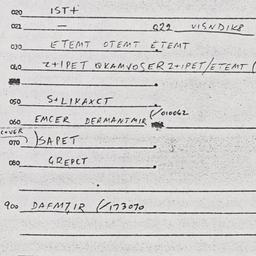 020 IST+
021 — 022 VISNDIK8
030 ETEMT OTEMT ETEMT
040 2+IPET QKAMVOSER 2+IPET/ETEMT (
050 S+LIKAXCT
060 EMCER DERMANTMIR (/010062
COVER
070 )SAPET
080 GREPCT
900 DAFM7IR (/173070